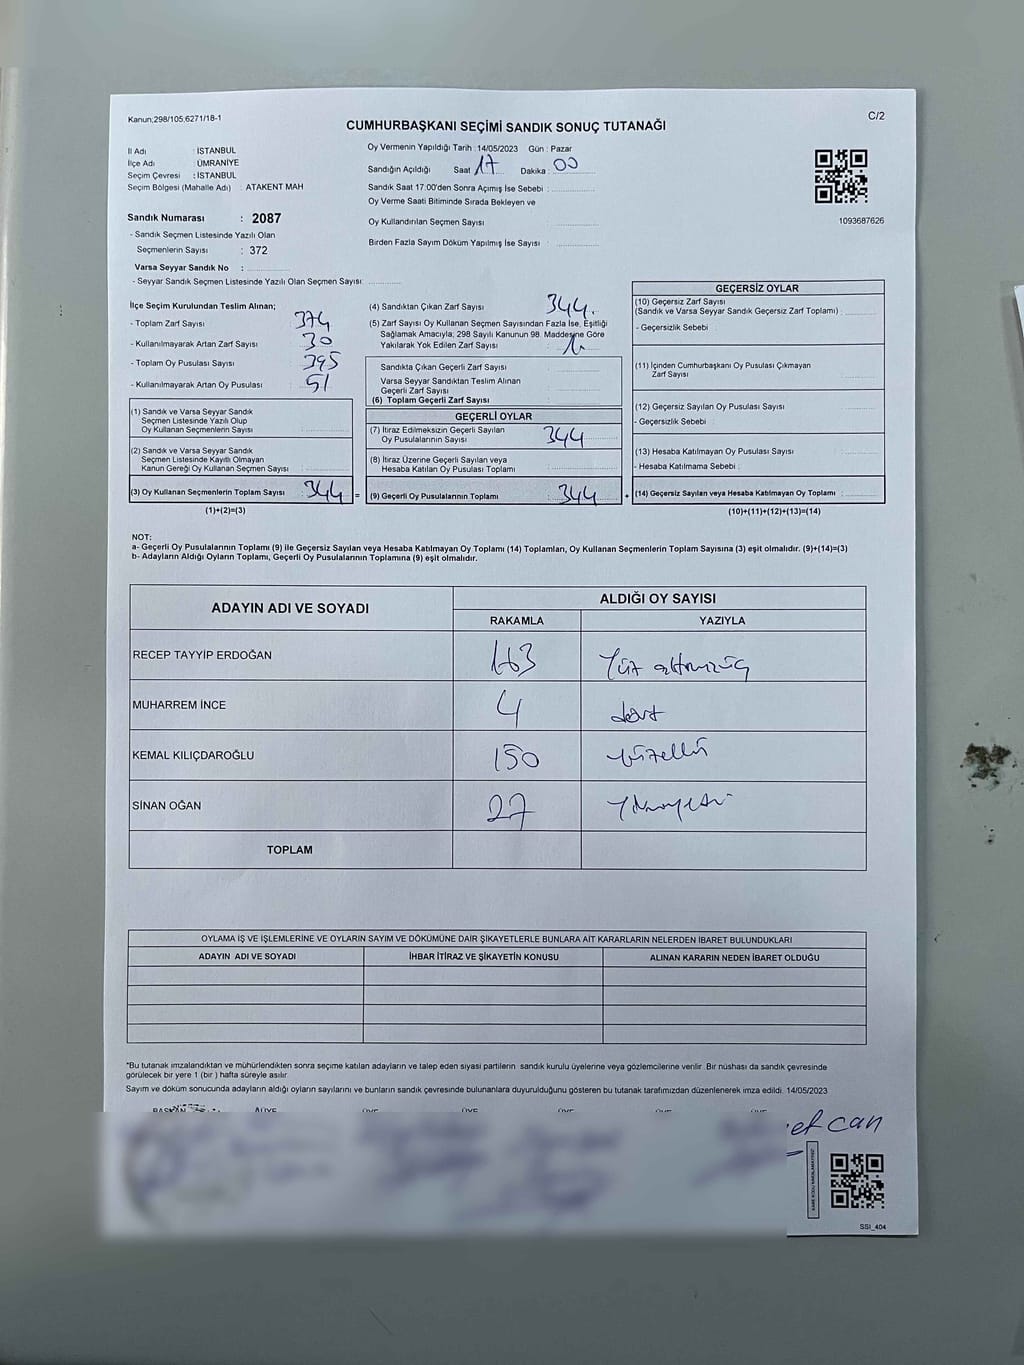 Kanun;298/105;6271/18-1
C/2
CUMHURBAŞKANI SEÇİMİ SANDIK SONUÇ TUTANAĞI
İl Adı : İSTANBUL
İlçe Adı : ÜMRANİYE
Seçim Çevresi : İSTANBUL
Seçim Bölgesi (Mahalle Adı) : ATAKENT MAH
Oy Vermenin Yapıldığı Tarih : 14/05/2023 Gün : Pazar
Sandığın Açıldığı Saat 17 Dakika : 00
Sandık Saat 17:00'den Sonra Açımış İse Sebebi :
Oy Verme Saati Bitiminde Sırada Bekleyen ve
Oy Kullandırılan Seçmen Sayısı
Birden Fazla Sayım Döküm Yapılmış İse Sayısı :
1093687626
Sandık Numarası : 2087
- Sandık Seçmen Listesinde Yazılı Olan
Seçmenlerin Sayısı : 372
Varsa Seyyar Sandık No :
- Seyyar Sandık Seçmen Listesinde Yazılı Olan Seçmen Sayısı:
İlçe Seçim Kurulundan Teslim Alınan;
- Toplam Zarf Sayısı 374
- Kullanılmayarak Artan Zarf Sayısı : 30
- Toplam Oy Pusulası Sayısı : 395
- Kullanılmayarak Artan Oy Pusulası : 51
(1) Sandık ve Varsa Seyyar Sandık
Seçmen Listesinde Yazılı Olup
Oy Kullanan Seçmenlerin Sayısı :
(2) Sandık ve Varsa Seyyar Sandık
Seçmen Listesinde Kayıtlı Olmayan
Kanun Gereği Oy Kullanan Seçmen Sayısı :
(3) Oy Kullanan Seçmenlerin Toplam Sayısı : 344 =
(1)+(2)=(3)
(4) Sandıktan Çıkan Zarf Sayısı 344.
(5) Zarf Sayısı Oy Kullanan Seçmen Sayısından Fazla İse, Eşitliği
Sağlamak Amacıyla; 298 Sayılı Kanunun 98. Maddesine Göre
Yakılarak Yok Edilen Zarf Sayısı :
Sandıkta Çıkan Geçerli Zarf Sayısı :
Varsa Seyyar Sandıktan Teslim Alınan
Geçerli Zarf Sayısı :
(6) Toplam Geçerli Zarf Sayısı :
GEÇERLİ OYLAR
(7) İtiraz Edilmeksizin Geçerli Sayılan
Oy Pusulalarının Sayısı 344
(8) İtiraz Üzerine Geçerli Sayılan veya
Hesaba Katılan Oy Pusulası Toplamı :
(9) Geçerli Oy Pusulalarının Toplamı : 344 +
GEÇERSİZ OYLAR
(10) Geçersiz Zarf Sayısı
(Sandık ve Varsa Seyyar Sandık Geçersiz Zarf Toplamı) :
- Geçersizlik Sebebi :
(11) İçinden Cumhurbaşkanı Oy Pusulası Çıkmayan
Zarf Sayısı
(12) Geçersiz Sayılan Oy Pusulası Sayısı :
- Geçersizlik Sebebi :
(13) Hesaba Katılmayan Oy Pusulası Sayısı :
- Hesaba Katılmama Sebebi :
(14) Geçersiz Sayılan veya Hesaba Katılmayan Oy Toplamı :
(10)+(11)+(12)+(13)=(14)
NOT:
a- Geçerli Oy Pusulalarının Toplamı (9) ile Geçersiz Sayılan veya Hesaba Katılmayan Oy Toplamı (14) Toplamları, Oy Kullanan Seçmenlerin Toplam Sayısına (3) eşit olmalıdır. (9)+(14)=(3)
b- Adayların Aldığı Oyların Toplamı, Geçerli Oy Pusulalarının Toplamına (9) eşit olmalıdır.
ADAYIN ADI VE SOYADI
ALDIĞI OY SAYISI
RAKAMLA YAZIYLA
RECEP TAYYİP ERDOĞAN 163 Yüz altmışüç
MUHARREM İNCE 4 dört
KEMAL KILIÇDAROĞLU 150 yüzelli
SİNAN OĞAN 27 Yirmiyedi
TOPLAM
OYLAMA İŞ VE İŞLEMLERİNE VE OYLARIN SAYIM VE DÖKÜMÜNE DAİR ŞİKAYETLERLE BUNLARA AİT KARARLARIN NELERDEN İBARET BULUNDUKLARI
ADAYIN ADI VE SOYADI İHBAR İTİRAZ VE ŞİKAYETİN KONUSU ALINAN KARARIN NEDEN İBARET OLDUĞU
*Bu tutanak imzalandıktan ve mühürlendikten sonra seçime katılan adayların ve talep eden siyasi partilerin sandık kurulu üyelerine veya gözlemcilerine verilir. Bir nüshası da sandık çevresinde
görülecek bir yere 1 (bir ) hafta süreyle asılır.
Sayım ve döküm sonucunda adayların aldığı oyların sayılarını ve bunların sandık çevresinde bulunanlara duyurulduğunu gösteren bu tutanak tarafımızdan düzenlenerek imza edildi. 14/05/2023
BAŞKAN
can
SSI_404